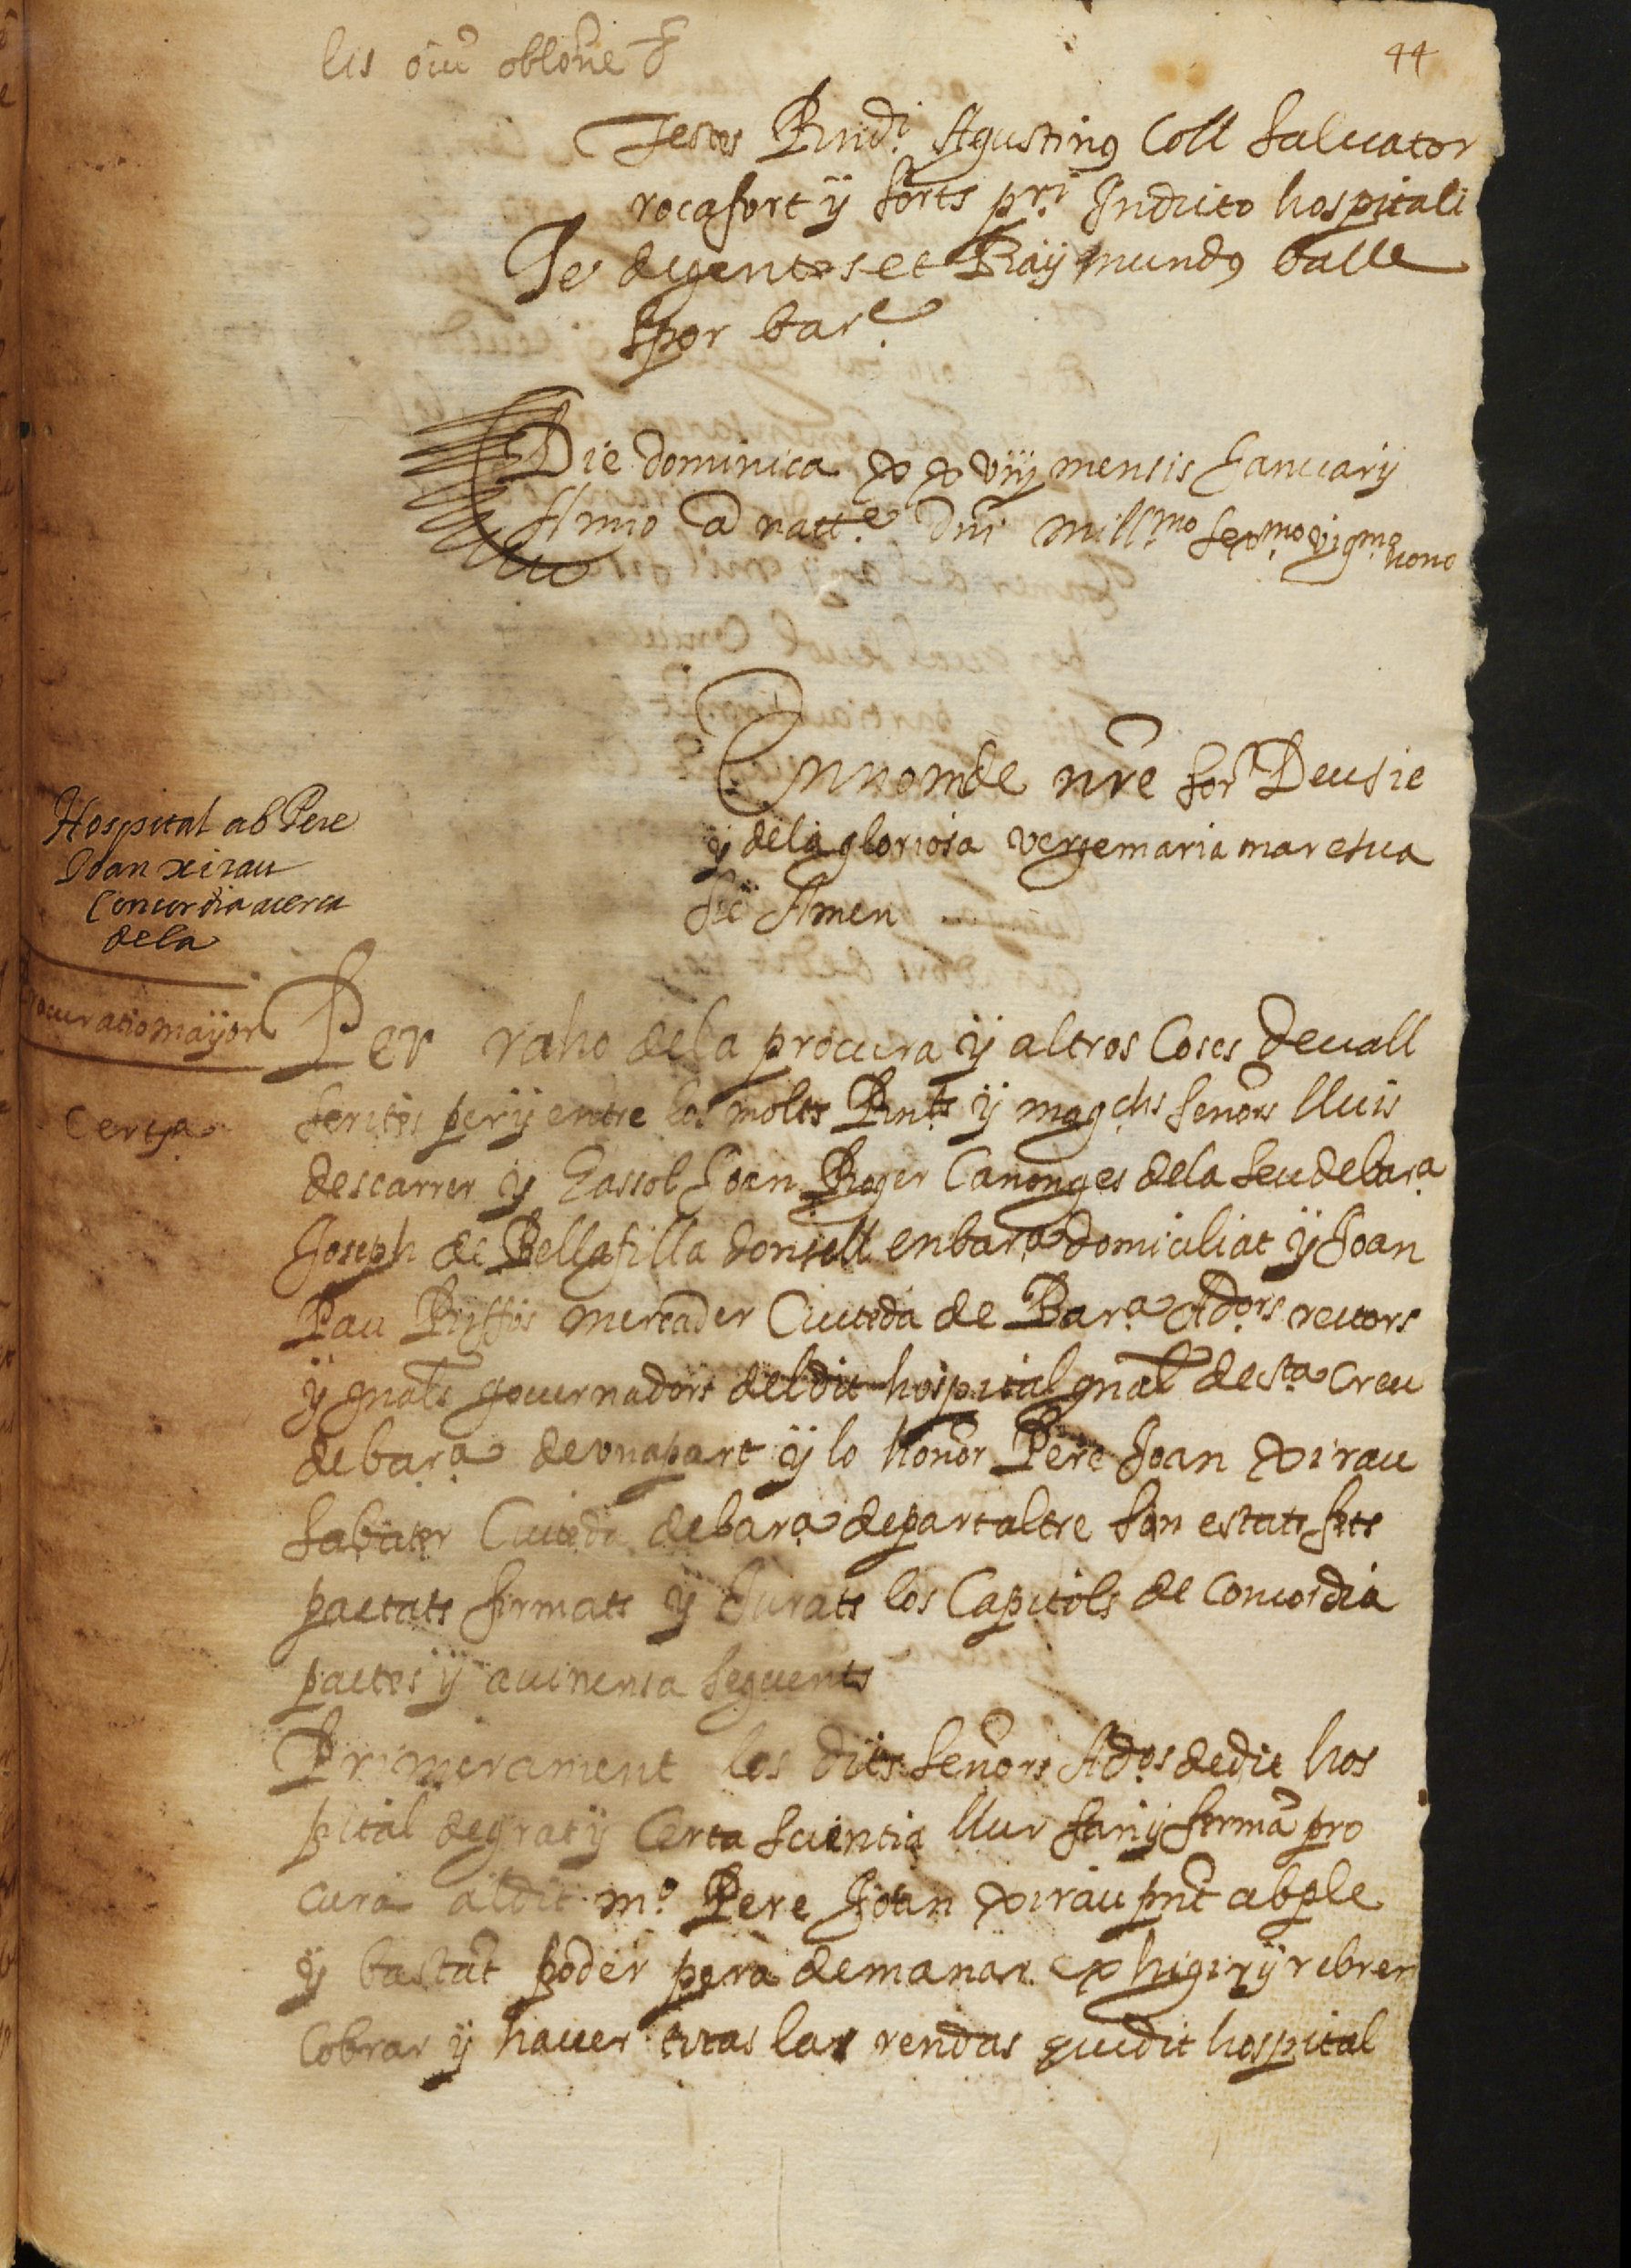 44
lis oiu oblone &
Testes Rndi. Agustinus Coll Saluator
rocafort y sorts pri. Indicto hospitali
degentes et Raymundus balle
spor bare.
Die dominica xxviij mensis Januarij
Anno a natte. Dni mill.mo sex.mo vig.mo nono
En nom de nre sor Deu sie
y dela gloriosa verge maria mare sua
sie Amen
Hospital ab Pere
Joan xirau
Concordia acerca
dela
procuratio mayor
Cerca
Per raho dela procura y altros Coses deuall
scrites per y entre los molts Rnts y magchs senors lluis
descarrer y Gassol Joan Roger Canonges dela seu de bara
Joseph de Bellafilla donsell en bara domiciliat y Joan
Pau mercader Ciuteda de Bara. Adors rectors
y gnals gouernadors del dit hospital gnal de sta creu
de bara. de vna part y lo honor Pere Joan xirau
sabater Ciuteda de bara de part altre son estats fets
pactats firmats y Jurats los Capitols de Concordia
pactes y auinensa seguents
Primerament los dits senors Ados de dit hos
pital de grat y Certa scientia llur fan y ferma pro
cura al dit mo. Pere Joan xirau pnt ab ple
y bastat poder pera demanar exhigir y rebrer
Cobrar y hauer totas las rendas que dit hospital